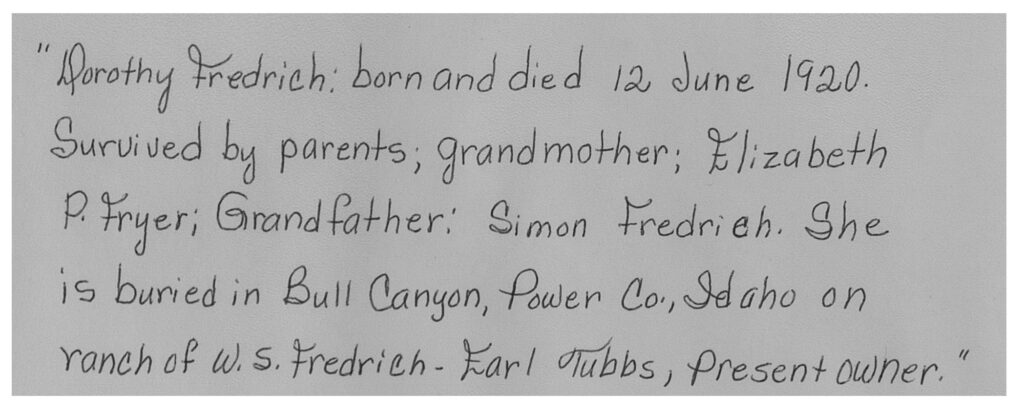 "Dorothy Fredrich: born and died 12 June 1920.
Survived by parents; grandmother; Elizabeth
P. Fryer; Grandfather: Simon Fredrich. She
is buried in Bull Canyon, Power Co., Idaho on
ranch of W. S. Fredrich - Earl Tubbs, Present owner."